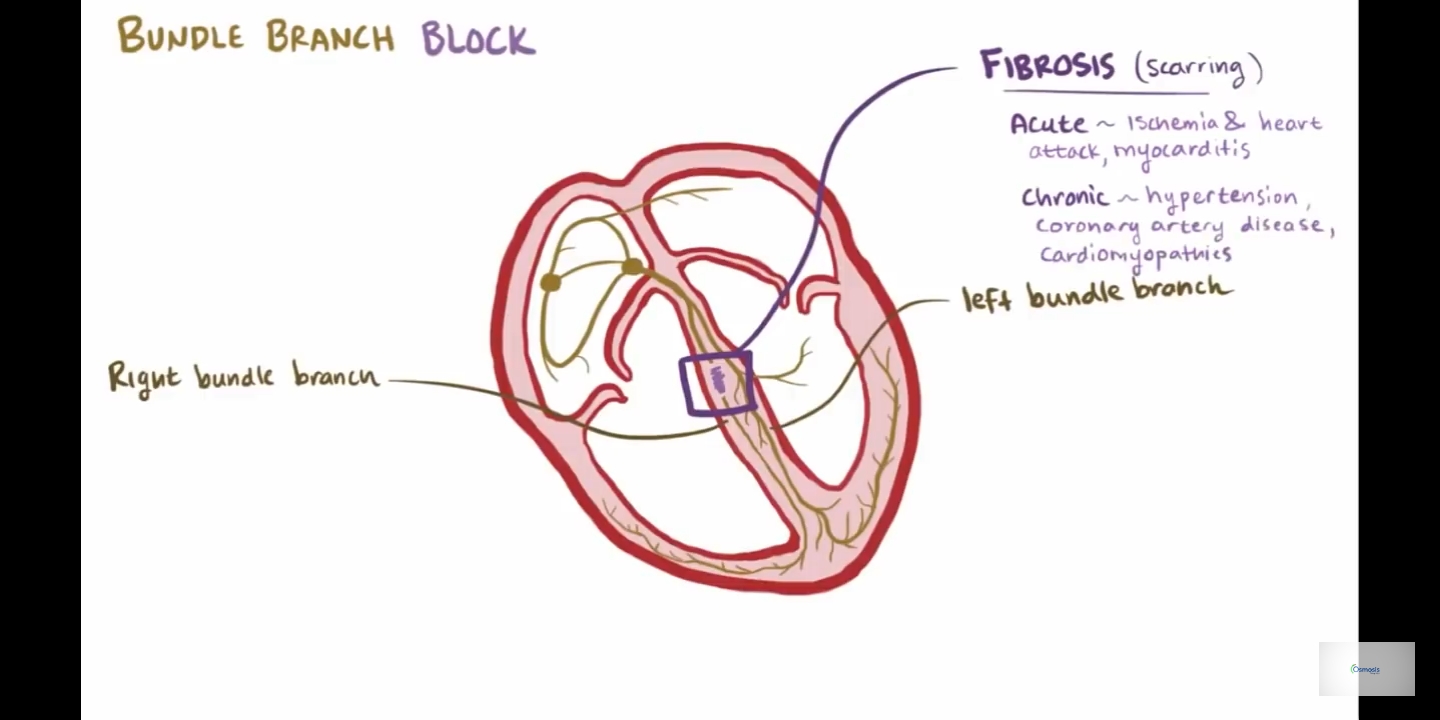 BUNDLE BRANCH BLOCK
FIBROSIS (scarring)
Acute ~ Ischemia & heart
attack, myocarditis
Chronic ~ hypertension,
coronary artery disease,
cardiomyopathies
left bundle branch
Right bundle branch
Osmosis